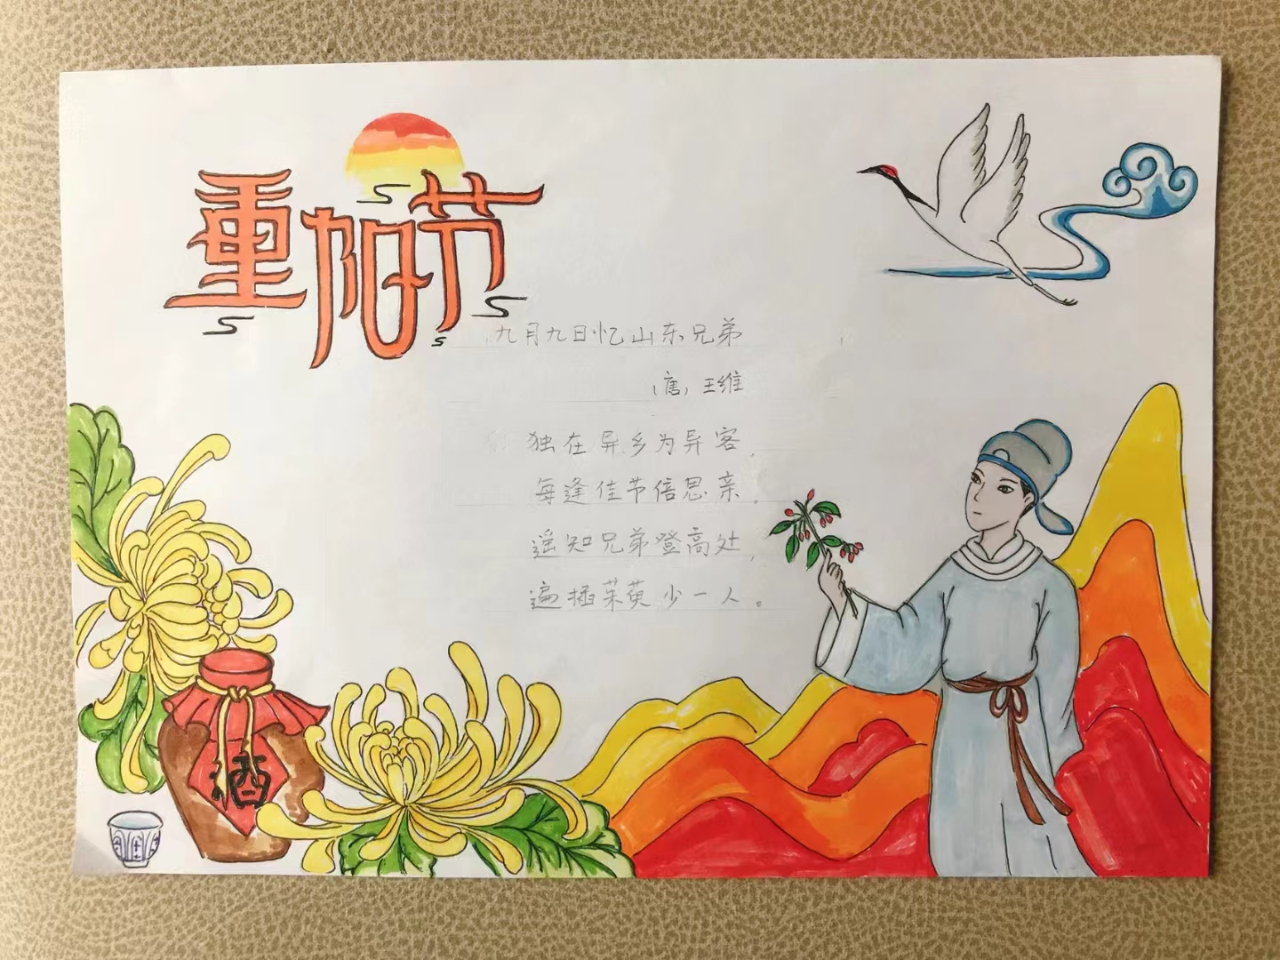 重阳节
九月九日忆山东兄弟
(唐) 王维
独在异乡为异客,
每逢佳节倍思亲。
遥知兄弟登高处,
遍插茱萸少一人。
酒